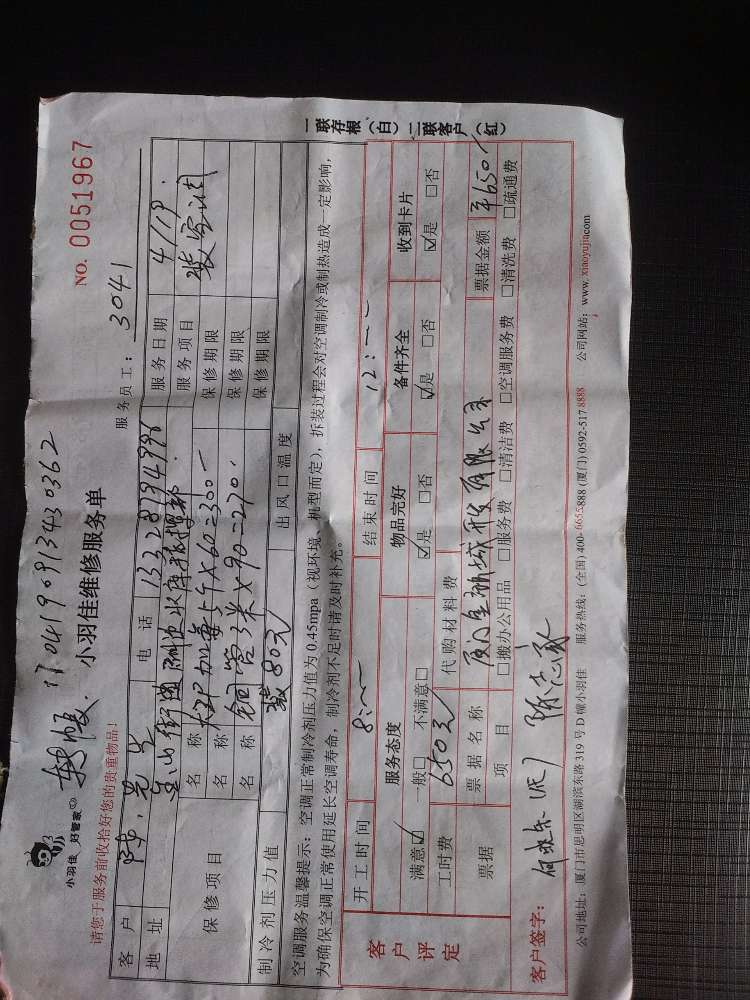 1704190913430362
小羽佳 好管家
转账
小羽佳维修服务单
NO. 0051967
请您于服务前收拾好您的贵重物品!
服务员工: 3041
客户 先生 电话 服务日期 4/19.
地址 服务项目 装空调
保修项目 名称 保修期限
名称 铜管3米×90=270. 保修期限
名称 保修期限
制冷剂压力值 80元 出风口温度
空调服务温馨提示: 空调正常制冷剂压力值为 0.45mpa (视环境、机型而定), 拆装过程会对空调制冷或制热造成一定影响,
为确保空调正常使用延长空调寿命, 制冷剂不足时请及时补充。
一联存根(白) 二联客户(红)
客户评定
开工时间 8:-- 结束时间 12:--
服务态度 物品完好 备件齐全 收到卡片
满意☑ 一般□ 不满意□ ☑是 □否 ☑是 □否 ☑是 □否
工时费 650元 代购材料费
票据 票据名称 票据金额 ¥650.
项目 □搬办公用品 □服务费 □清洁费 □空调服务费 □清洗费 □疏通费
客户签字:
公司地址: 厦门市思明区湖滨东路 319 号 D 幢小羽佳 服务热线: (全国) 400-6655888 (厦门) 0592-5178888 公司网站: www.xiaoyujia.com